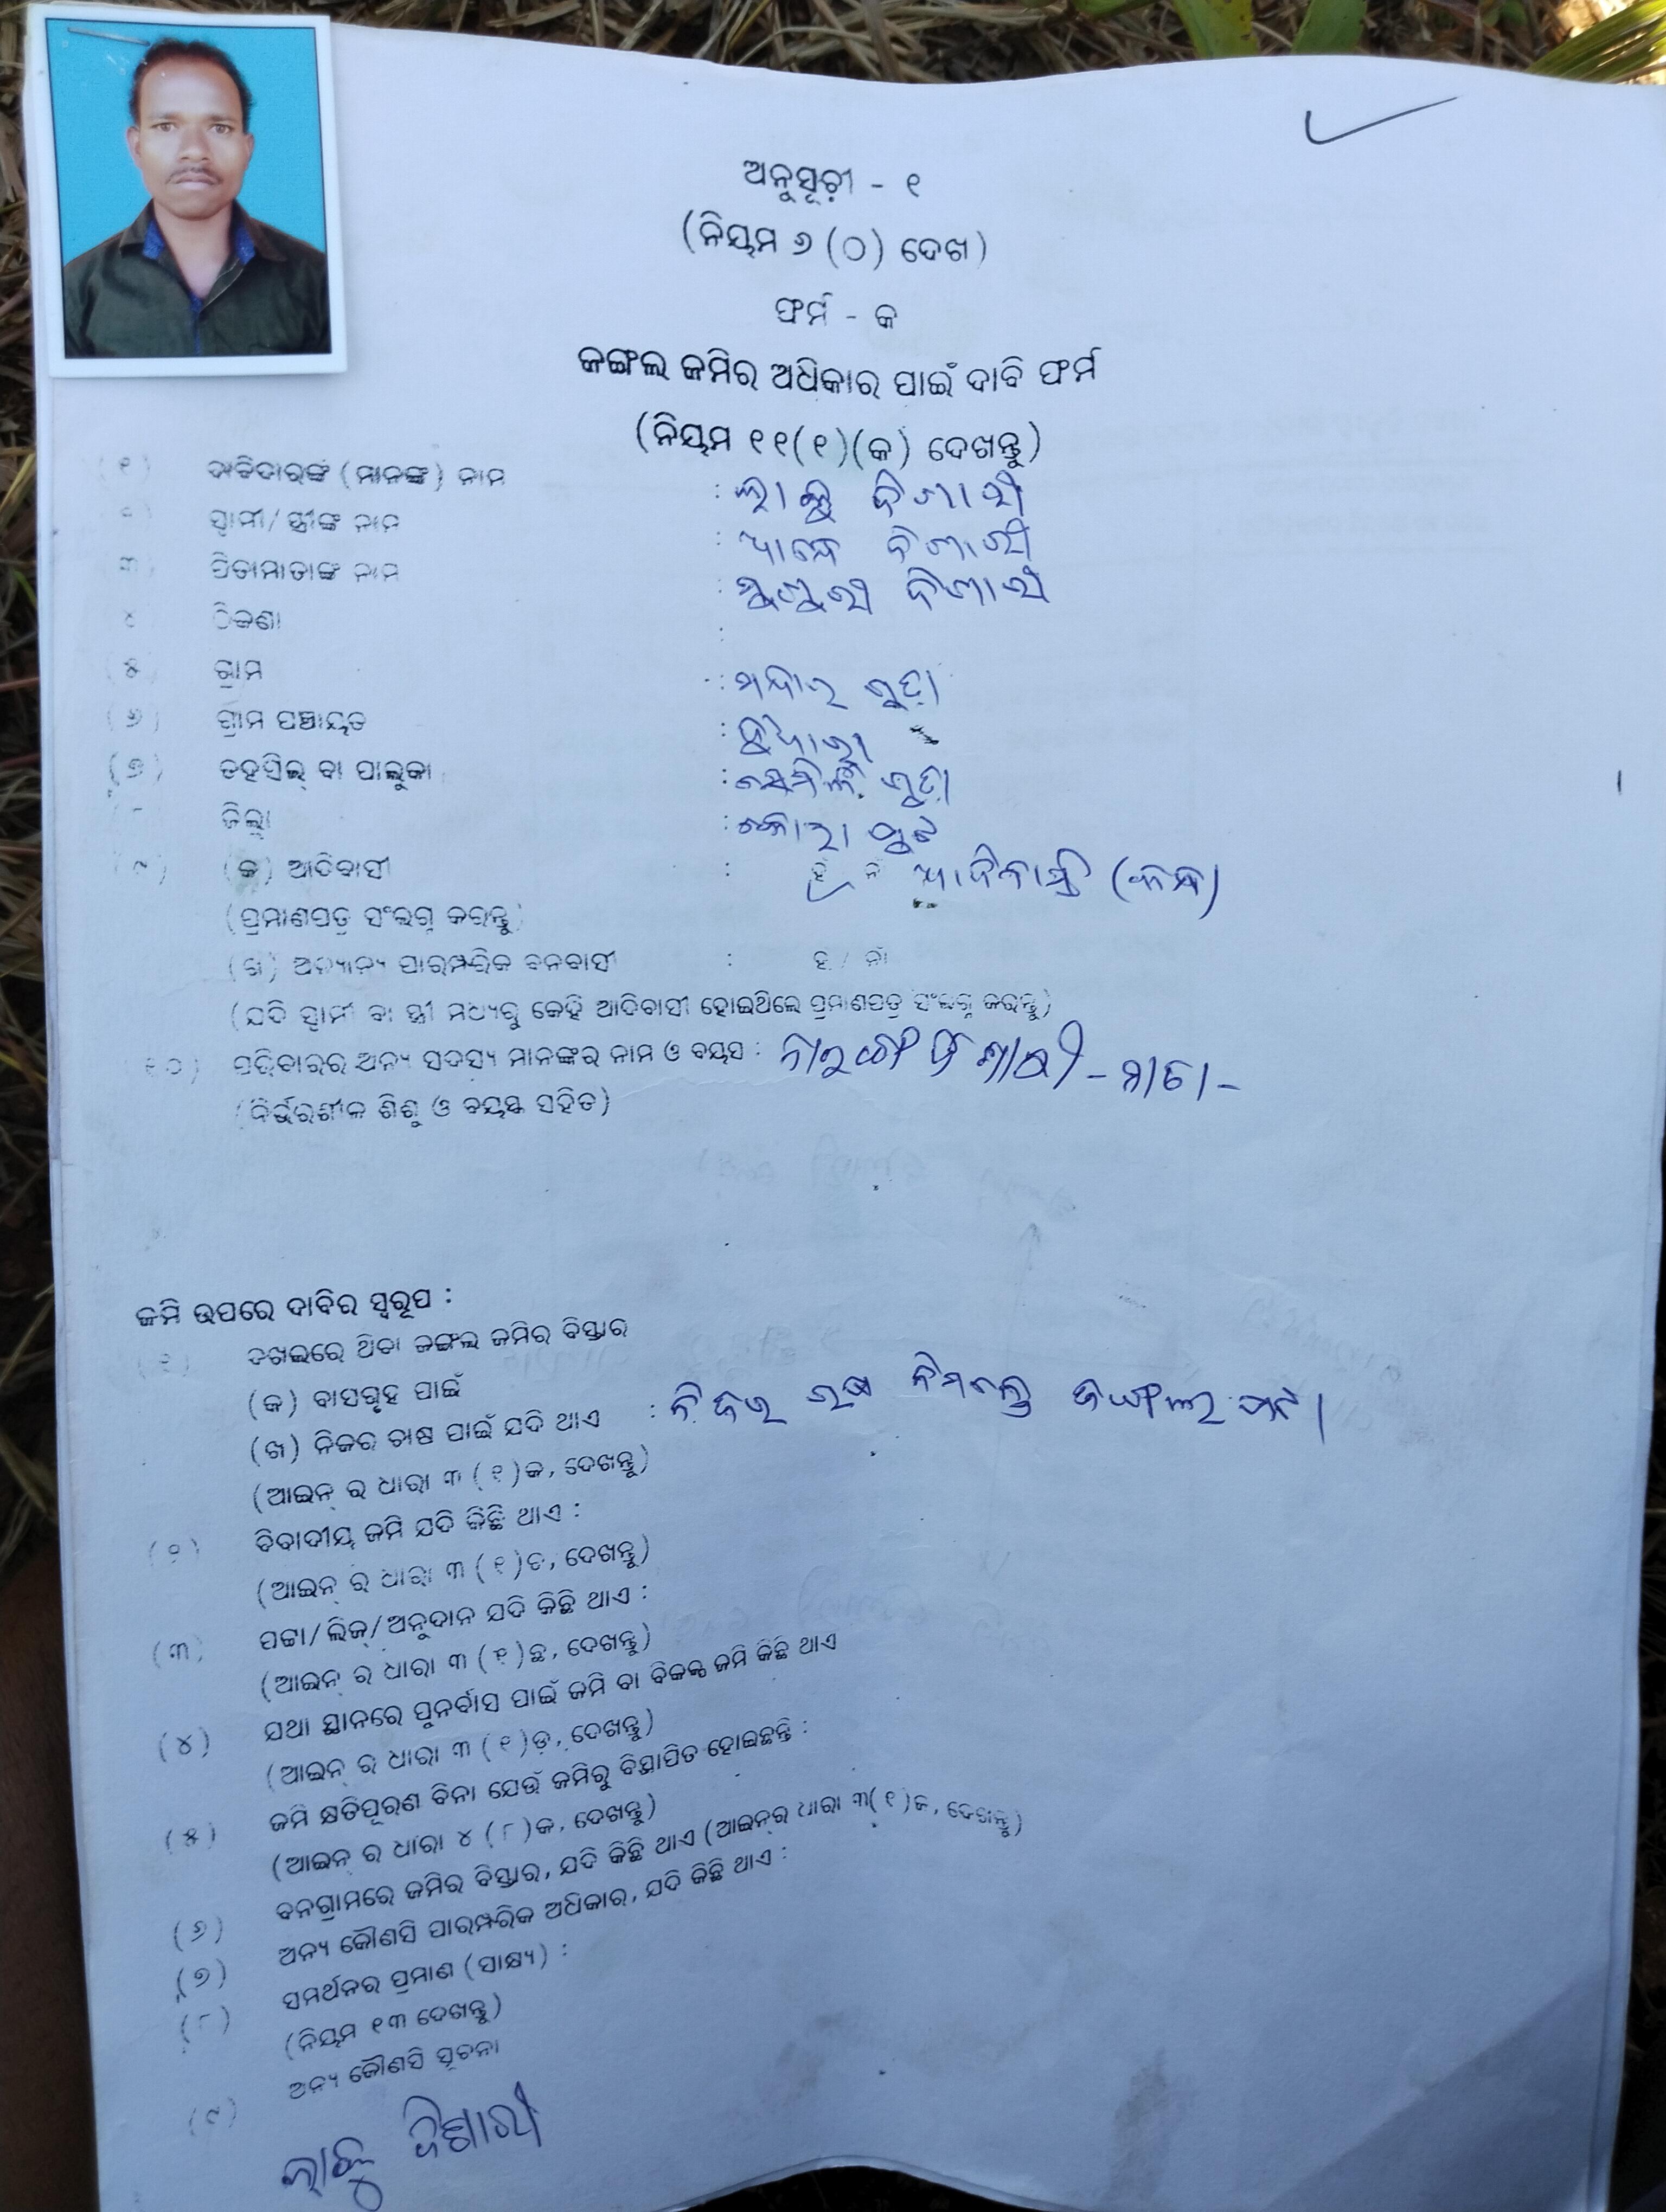 ଅନୁସୂଚୀ - ୧
(ନିୟମ ୬ (୦) ଦେଖ)
ଫର୍ମ - କ
ଜଙ୍ଗଲ ଜମିର ଅଧିକାର ପାଇଁ ଦାବି ଫର୍ମ
(ନିୟମ ୧୧(୧)(କ) ଦେଖନ୍ତୁ)
(୧) ଦାବିଦାରଙ୍କ (ମାନଙ୍କ) ନାମ :
ସ୍ୱାମୀ/ସ୍ତ୍ରୀଙ୍କ ନାମ :
୩) ପିତାମାତାଙ୍କ ନାମ :
୪ ଠିକଣା :
(୫) ଗ୍ରାମ :
(୬) ଗ୍ରାମ ପଞ୍ଚାୟତ :
(୭) ତହସିଲ୍ ବା ପାଲୁକା :
୮ ଜିଲ୍ଲା : କୋରାପୁଟ
(୯) (କ) ଆଦିବାସୀ : ହଁ ନାଁ ଆଦିବାସୀ (କନ୍ଧ)
(ପ୍ରମାଣପତ୍ର ସଂଲଗ୍ନ କରନ୍ତୁ)
(ଖ) ଅନ୍ୟାନ୍ୟ ପାରମ୍ପରିକ ବନବାସୀ : ହଁ / ନାଁ
(ଯଦି ସ୍ୱାମୀ ବା ସ୍ତ୍ରୀ ମଧ୍ୟରୁ କେହି ଆଦିବାସୀ ହୋଇଥିଲେ ପ୍ରମାଣପତ୍ର ସଂଲଗ୍ନ କରନ୍ତୁ)
୧୦) ପରିବାରର ଅନ୍ୟ ସଦସ୍ୟ ମାନଙ୍କର ନାମ ଓ ବୟସ : - ମାତା -
(ନିର୍ଭରଶୀଳ ଶିଶୁ ଓ ବୟସ୍କ ସହିତ)
ଜମି ଉପରେ ଦାବିର ସ୍ୱରୂପ :
(୧) ଦଖଲରେ ଥିବା ଜଙ୍ଗଲ ଜମିର ବିସ୍ତାର
(କ) ବାସଗୃହ ପାଇଁ
(ଖ) ନିଜର ଚାଷ ପାଇଁ ଯଦି ଥାଏ : ନିଜର ଚାଷ ନିମନ୍ତେ ଜଙ୍ଗଲ
(ଆଇନ୍ ର ଧାରା ୩ (୧)କ, ଦେଖନ୍ତୁ)
(୨) ବିବାଦୀୟ ଜମି ଯଦି କିଛି ଥାଏ :
(ଆଇନ୍ ର ଧାରା ୩ (୧)ଚ, ଦେଖନ୍ତୁ)
(୩) ପଟ୍ଟା/ଲିଜ୍/ଅନୁଦାନ ଯଦି କିଛି ଥାଏ :
(ଆଇନ୍ ର ଧାରା ୩ (୧)ଛ, ଦେଖନ୍ତୁ)
(୪) ଯଥା ସ୍ଥାନରେ ପୁନର୍ବାସ ପାଇଁ ଜମି ବା ବିକଳ୍ପ ଜମି କିଛି ଥାଏ
(ଆଇନ୍ ର ଧାରା ୩ (୧)ଡ଼, ଦେଖନ୍ତୁ)
(୫) ଜମି କ୍ଷତିପୂରଣ ବିନା ଯେଉଁ ଜମିରୁ ବିସ୍ଥାପିତ ହୋଇଛନ୍ତି :
(ଆଇନ୍ ର ଧାରା ୪ (୮)କ, ଦେଖନ୍ତୁ)
(୬) ବନଗ୍ରାମରେ ଜମିର ବିସ୍ତାର, ଯଦି କିଛି ଥାଏ (ଆଇନ୍‌ର ଧାରା ୩(୧)ଜ, ଦେଖନ୍ତୁ)
(୭) ଅନ୍ୟ କୌଣସି ପାରମ୍ପରିକ ଅଧିକାର, ଯଦି କିଛି ଥାଏ :
(୮) ସମର୍ଥନର ପ୍ରମାଣ (ସାକ୍ଷ୍ୟ) :
(ନିୟମ ୧୩ ଦେଖନ୍ତୁ)
(୯) ଅନ୍ୟ କୌଣସି ସୂଚନା